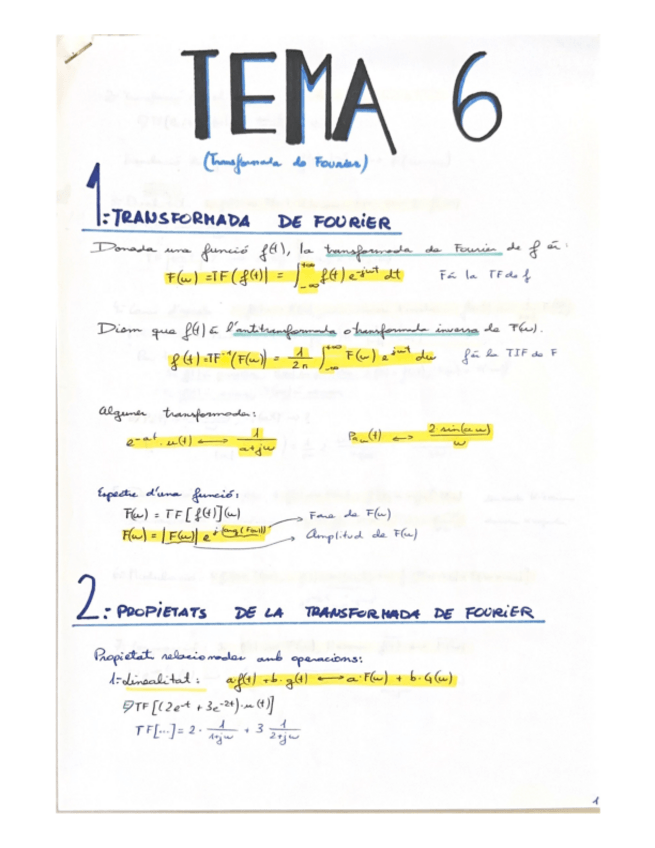 TEMA 6
(Transformada de Fourier)
1:TRANSFORMADA DE FOURIER
Donada una funció f(t), la transformada de Fourier de f és:
F(ω) = TF(f(t)) = ∫_{-∞}^{+∞} f(t) e^{-jωt} dt F és la TF de f
Diem que f(t) és l'antitransformada o transformada inversa de F(ω).
f(t) = TF⁻¹(F(ω)) = 1/2π ∫_{-∞}^{+∞} F(ω) e^{jωt} dω f és la TIF de F
Algunes transformades:
e^{-at}·u(t) ⟷ 1/(a+jω) (t) ⟷ 2·sin(aω)/ω
Espectre d'una funció:
F(ω) = TF[f(t)](ω)
F(ω) = |F(ω)| e^{j(arg(F(ω)))} Fase de F(ω)
Amplitud de F(ω)
2:PROPIETATS DE LA TRANSFORMADA DE FOURIER
Propietats relacionades amb operacions:
1-Linealitat: a·f(t) + b·g(t) ⟷ a·F(ω) + b·G(ω)
TF[(2e^{-t} + 3e^{-2t})·u(t)]
TF[...] = 2· 1/(1+jω) + 3 1/(2+jω)
1